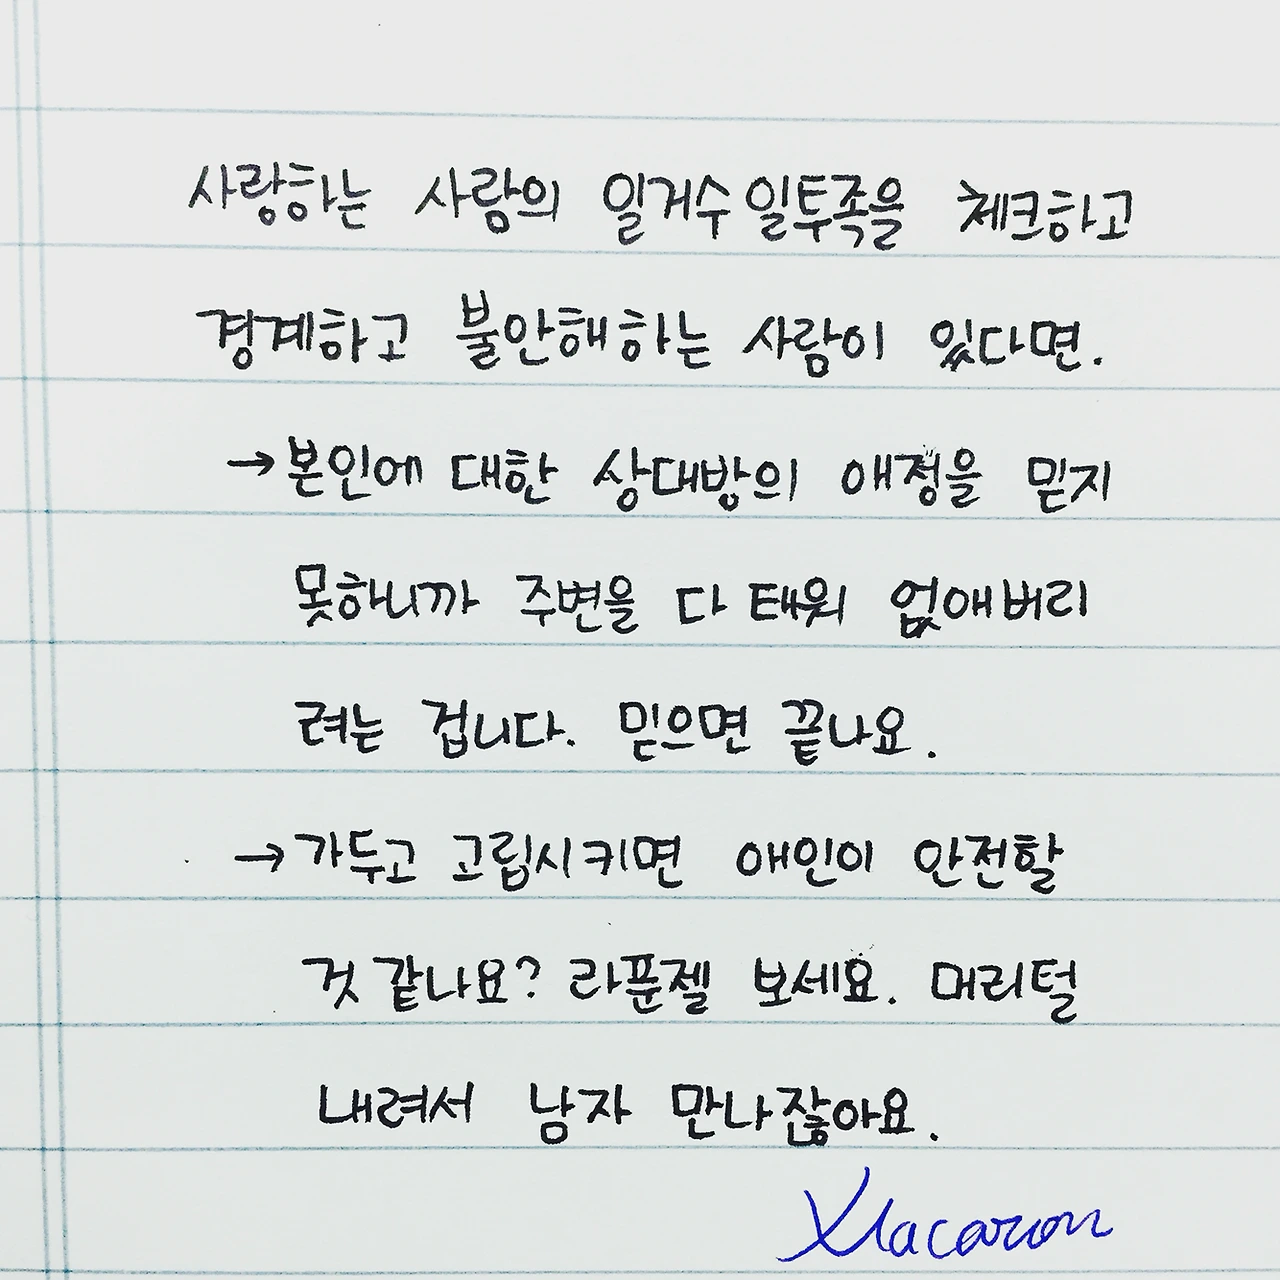 사랑하는 사람의 일거수일투족을 체크하고
경계하고 불안해하는 사람이 있다면.
→본인에 대한 상대방의 애정을 믿지
못하니까 주변을 다 태워 없애버리
려는 겁니다. 믿으면 끝나요.
→가두고 고립시키면 애인이 안전할
것 같나요? 라푼젤 보세요. 머리털
내려서 남자 만나잖아요.
Macaron